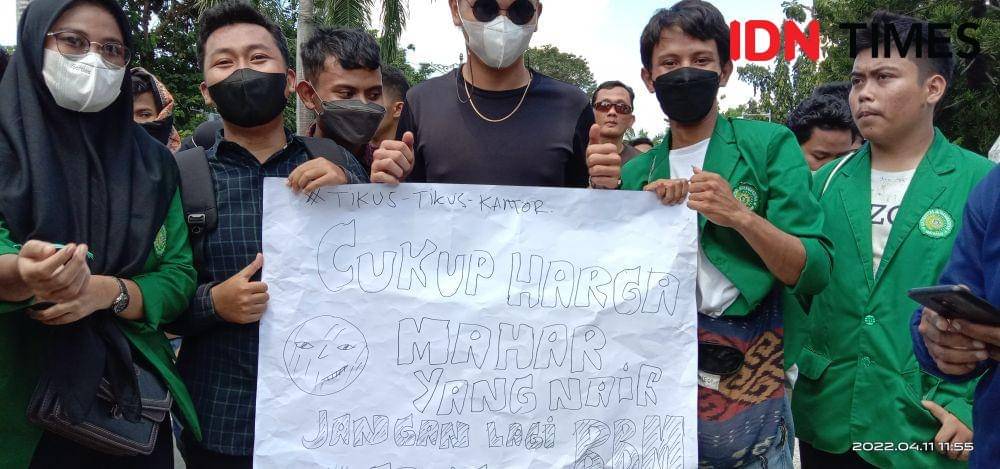 IDN TIMES
# TIKUS-TIKUS-KANTOR.
CUKUP HARGA
MAHAR
YANG NAIK
JANGAN LAGI BBM
2022.04.11 11:55